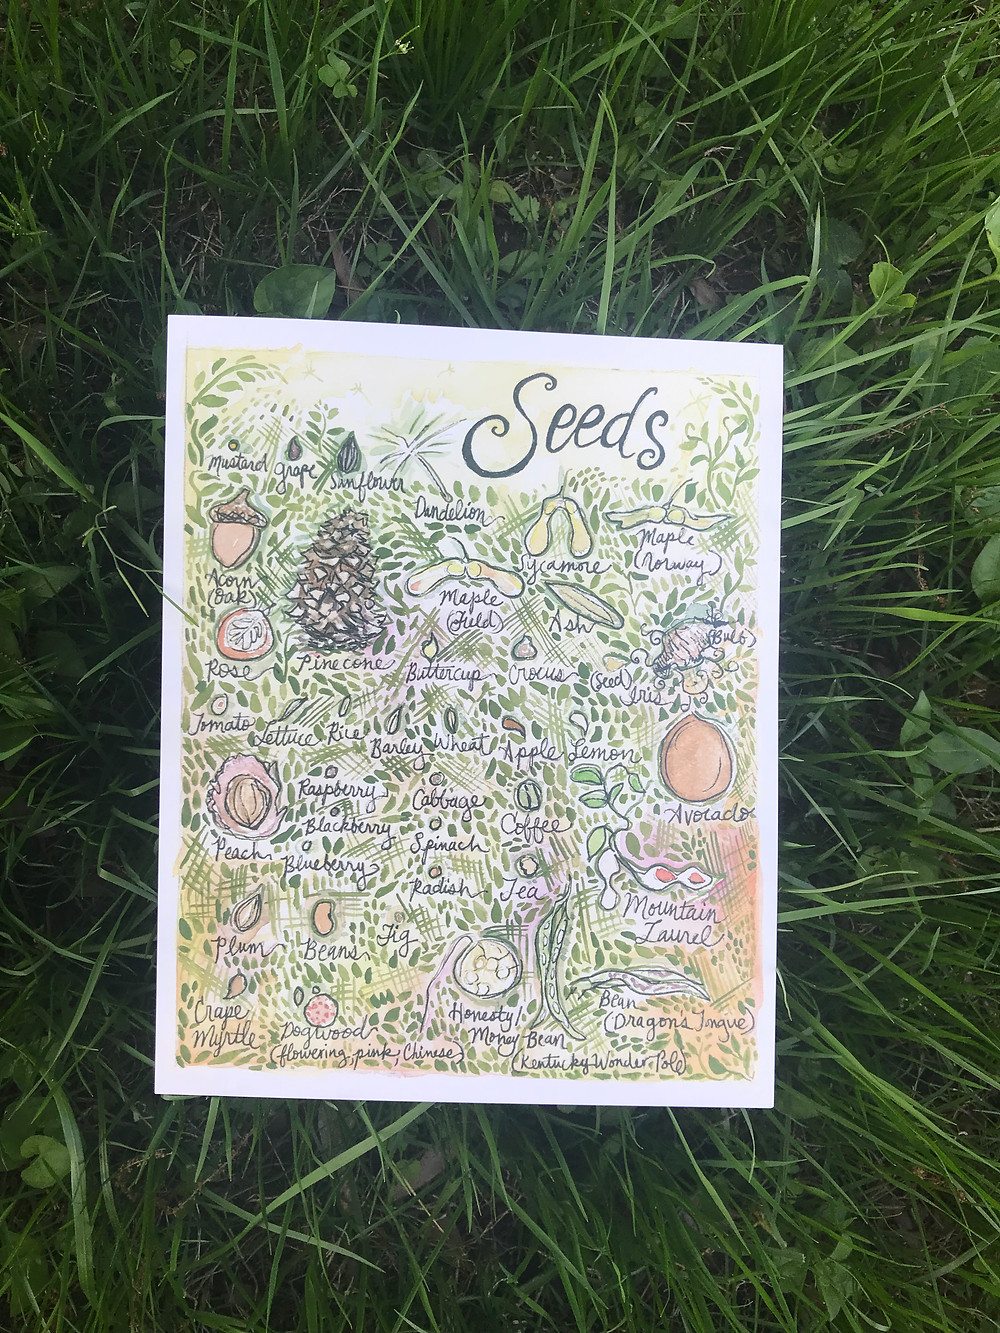 Seeds
Mustard
Grape
Sunflower
Dandelion
Sycamore
Maple
(Norway)
Acorn
(Oak)
Pinecone
Maple
(Field)
Ash
Rose
Buttercup
Crocus
(Seed) Iris
(Bulb)
Tomato
Lettuce
Rice
Barley
Wheat
Apple
Lemon
Avocado
Peach
Raspberry
Blackberry
Blueberry
Cabbage
Spinach
Radish
Coffee
Tea
Mountain
Laurel
Plum
Beans
Fig
Crape
Myrtle
Dogwood
(flowering, pink, Chinese)
Honesty/
Money
Bean
(Kentucky Wonder Pole)
Bean
(Dragon's Tongue)